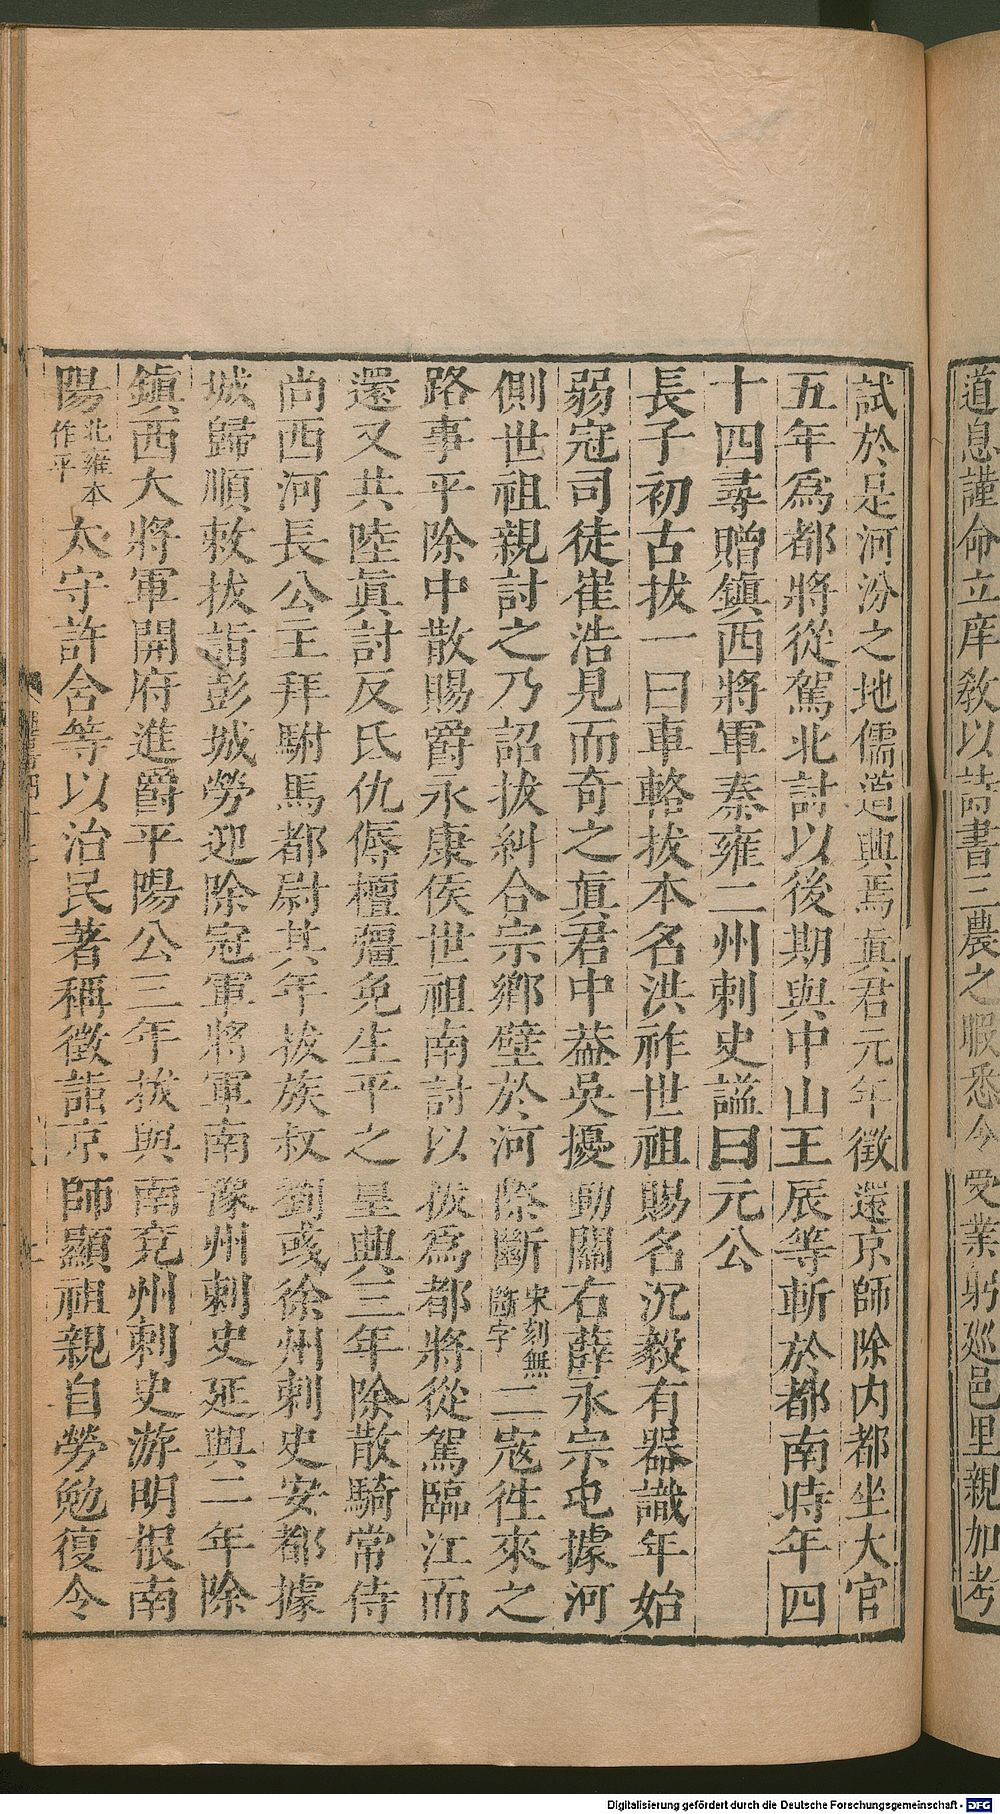 道息謹命立庠教以詩書三農之暇悉令受業躬巡邑里親加考
試於是河汾之地儒道興焉眞君元年徵還京師除內都坐大官
五年爲都將從駕北討以後期與中山王辰等斬於都南時年四
十四尋贈鎮西將軍秦雍二州刺史謚曰元公
長子初古拔一曰車輅拔本名洪祚世祖賜名沉毅有器識年始
弱冠司徒崔浩見而奇之眞君中葢吳擾動關右薛永宗屯據河
側世祖親討之乃詔拔糾合宗鄉壁於河際斷宋刻無斷字二寇徃來之
路事平除中散賜爵永康侯世祖南討以拔爲都將從駕臨江而
還又共陸眞討反氐仇傉檀彊免生平之皇興三年除散騎常侍
尚西河長公主拜駙馬都尉其年拔族叔劉彧徐州刺史安都據
城歸順敕拔詣彭城勞迎除冠軍將軍南豫州刺史延興二年除
鎮西大將軍開府進爵平陽公三年拔與南兖州刺史游明根南
陽北雍本作平太守許含等以治民著稱徵詣京師顯祖親自勞勉復令
Digitalisierung gefördert durch die Deutsche Forschungsgemeinschaft - DFG